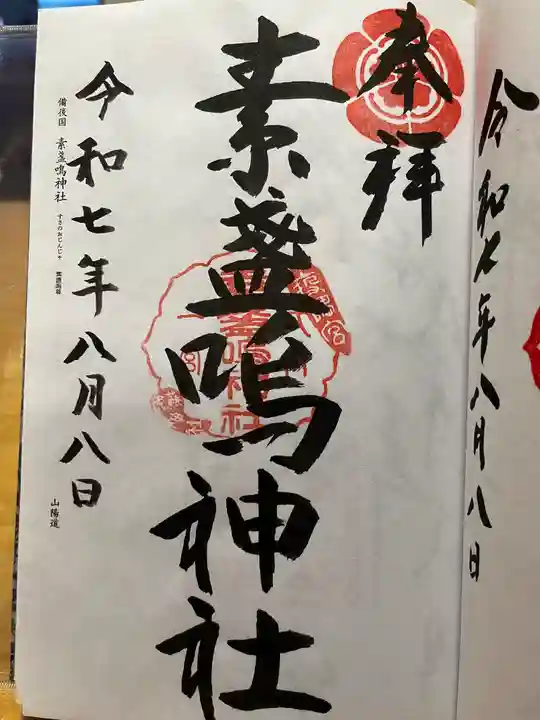 令和七年八月八日
奉拝
素盞嗚神社
令和七年八月八日
備後国 素盞嗚神社 すさのおじんじゃ
山陽道